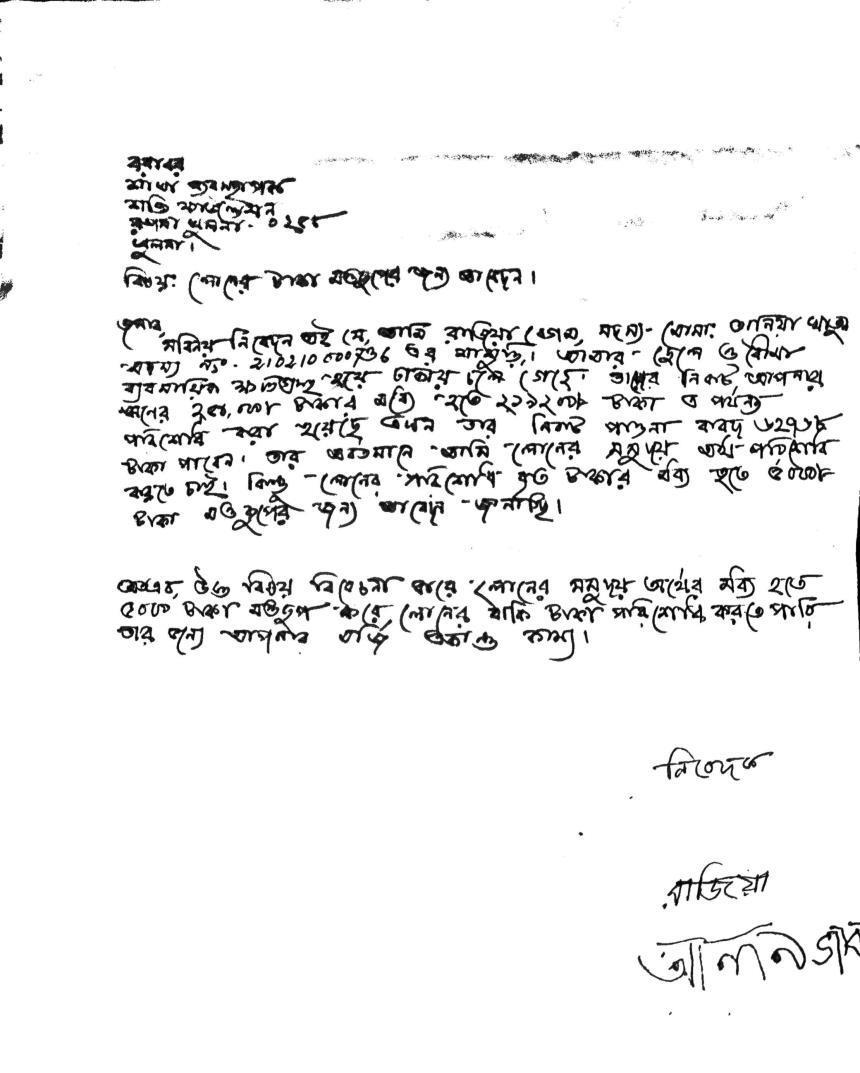 বরাবর
শাখা ব্যবস্থাপক
শক্তি ফাউন্ডেশন
রূপসা খুলনা - ০২৪৪
খুলনা।
বিষয়: লোনের টাকা মওকুপের জন্য আবেদন।
জনাব,
সবিনয় নিবেদন এই যে, আমি রাজিয়া বেগম, সদস্য- মোসা: তানিয়া খাতুন
সদস্য নং- এর শাশুড়ি। আমার ছেলে ও বৌমা
ব্যবসায়িক ক্ষতিগ্রস্থ হয়ে ঢাকায় চলে গেছে। তাদের নিকট আপনার
লোনের টাকার মধ্যে হতে টাকা এ পর্যন্ত
পরিশোধ করা হয়েছে এখন তার নিকট পাওনা বাবদ
টাকা পাবেন। তার বর্তমানে আমি লোনের সমুদয় অর্থ পরিশোধ
করতে চাই। কিন্তু লোনের পরিশোধ কৃত টাকার মধ্য হতে ৫০০০/-
টাকা মওকুপের জন্য আবেদন জানাচ্ছি।
অতএব, উক্ত বিষয় বিবেচনা করে লোনের সমুদয় অর্থের মধ্য হতে
৫০০০ টাকা মওকুপ করে লোনের বাকি টাকা পরিশোধ করতে পারি
তার জন্য আপনার মর্জি একান্ত কাম্য।
নিবেদক
রাজিয়া